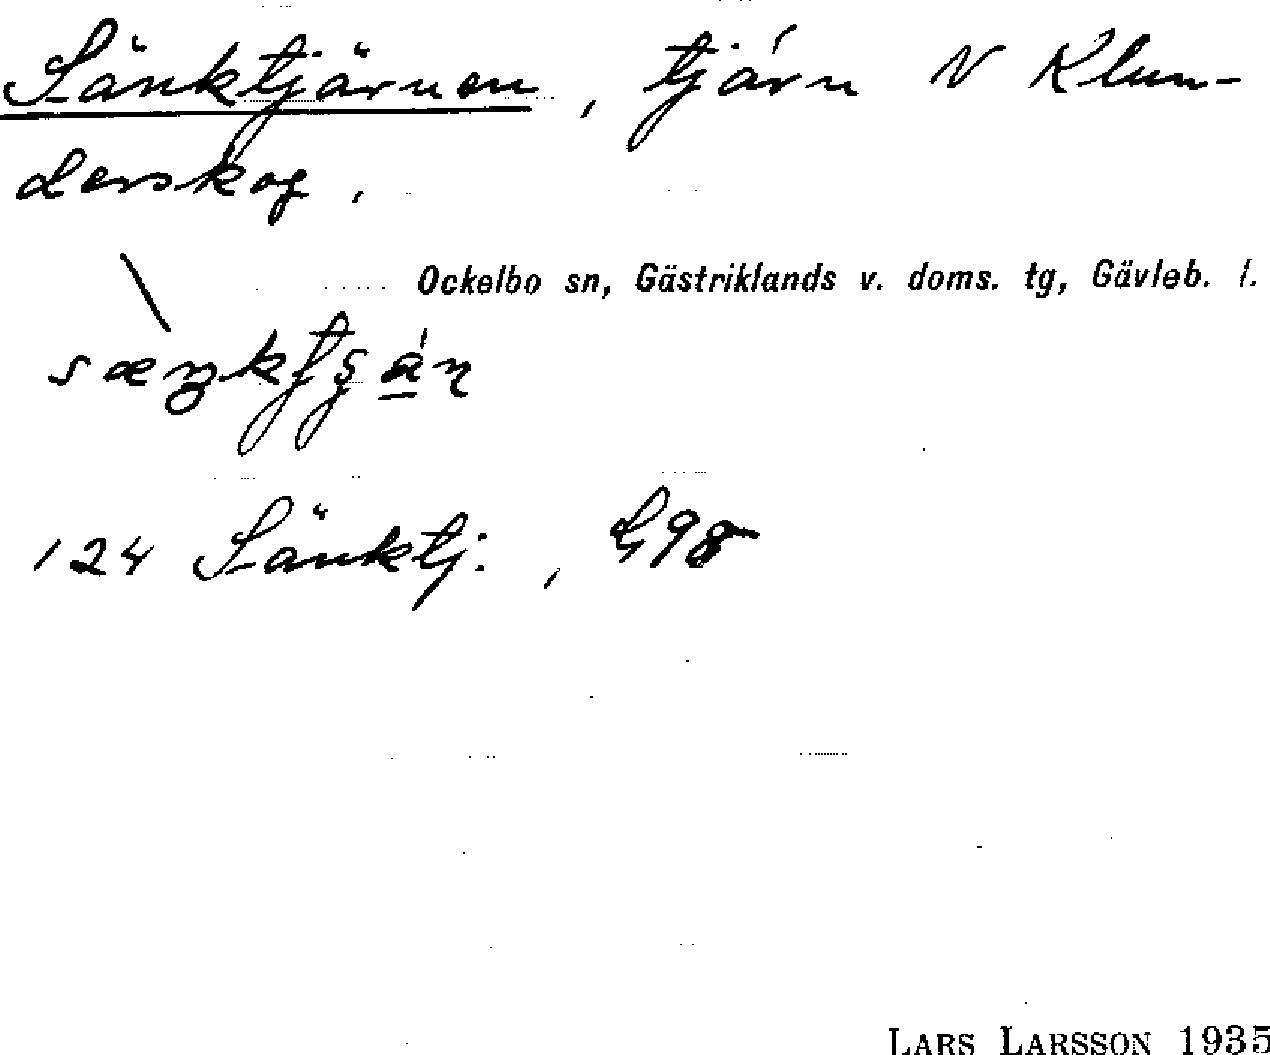 Sänktjärnen, tjärn N Klun-
derskog.
Ockelbo sn, Gästriklands v. doms. tg, Gävleb. l.
124 Sänktj:, G98
LARS LARSSON 1935